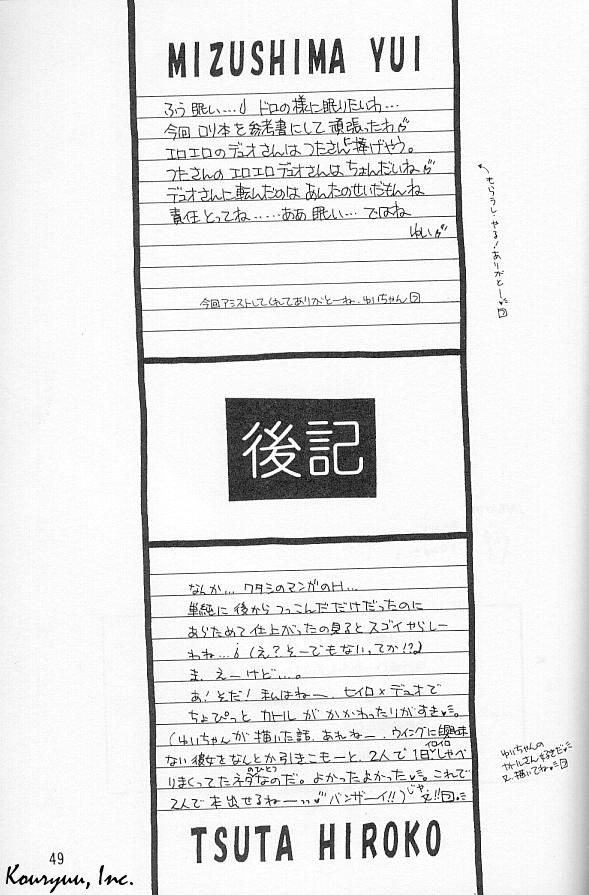 MIZUSHIMA YUI
ふう 眠い…💧 ドロの様に眠りたいわ…
今回 ロリ本を参考書にして 頑張ったわ
エロエロのデュオさんはつたさんに捧げやう。
つたさんのエロエロデュオさんはちょんだいね
デュオさんに転んだのは あんたのせいだもんね
責任とってね……ああ 眠い… ではね
ゆい
←もらうし、やる!ありがとー
今回アシストしてくれてありがとーね、ゆいちゃん
後記
なんか… ワタシのマンガのH…
単純に 後から つっこんだだけだったのに
あらためて 仕上がったの見ると スゴイやらしー
わね…💧(え?そーでもないってか!?)
ま、えーけど…。
あ!そだ!私はねー、ヒイロ×デュオで
ちょぴっと カトルが かかわったりがすき。
(ゆいちゃんが 描いた話、あれねー、ウイングに興味
ない彼女をなんとか引きこもーと、2人で1日イロイロしゃべ
りまくってたネタのひとつなのだ。よかったよかった。これで
2人で本出せるねーっっ バンザーイ!!)じゃ、又!!
ゆいちゃんの
カトルさん好きだ
又、描いてね
TSUTA HIROKO
49
Kouryuu, Inc.